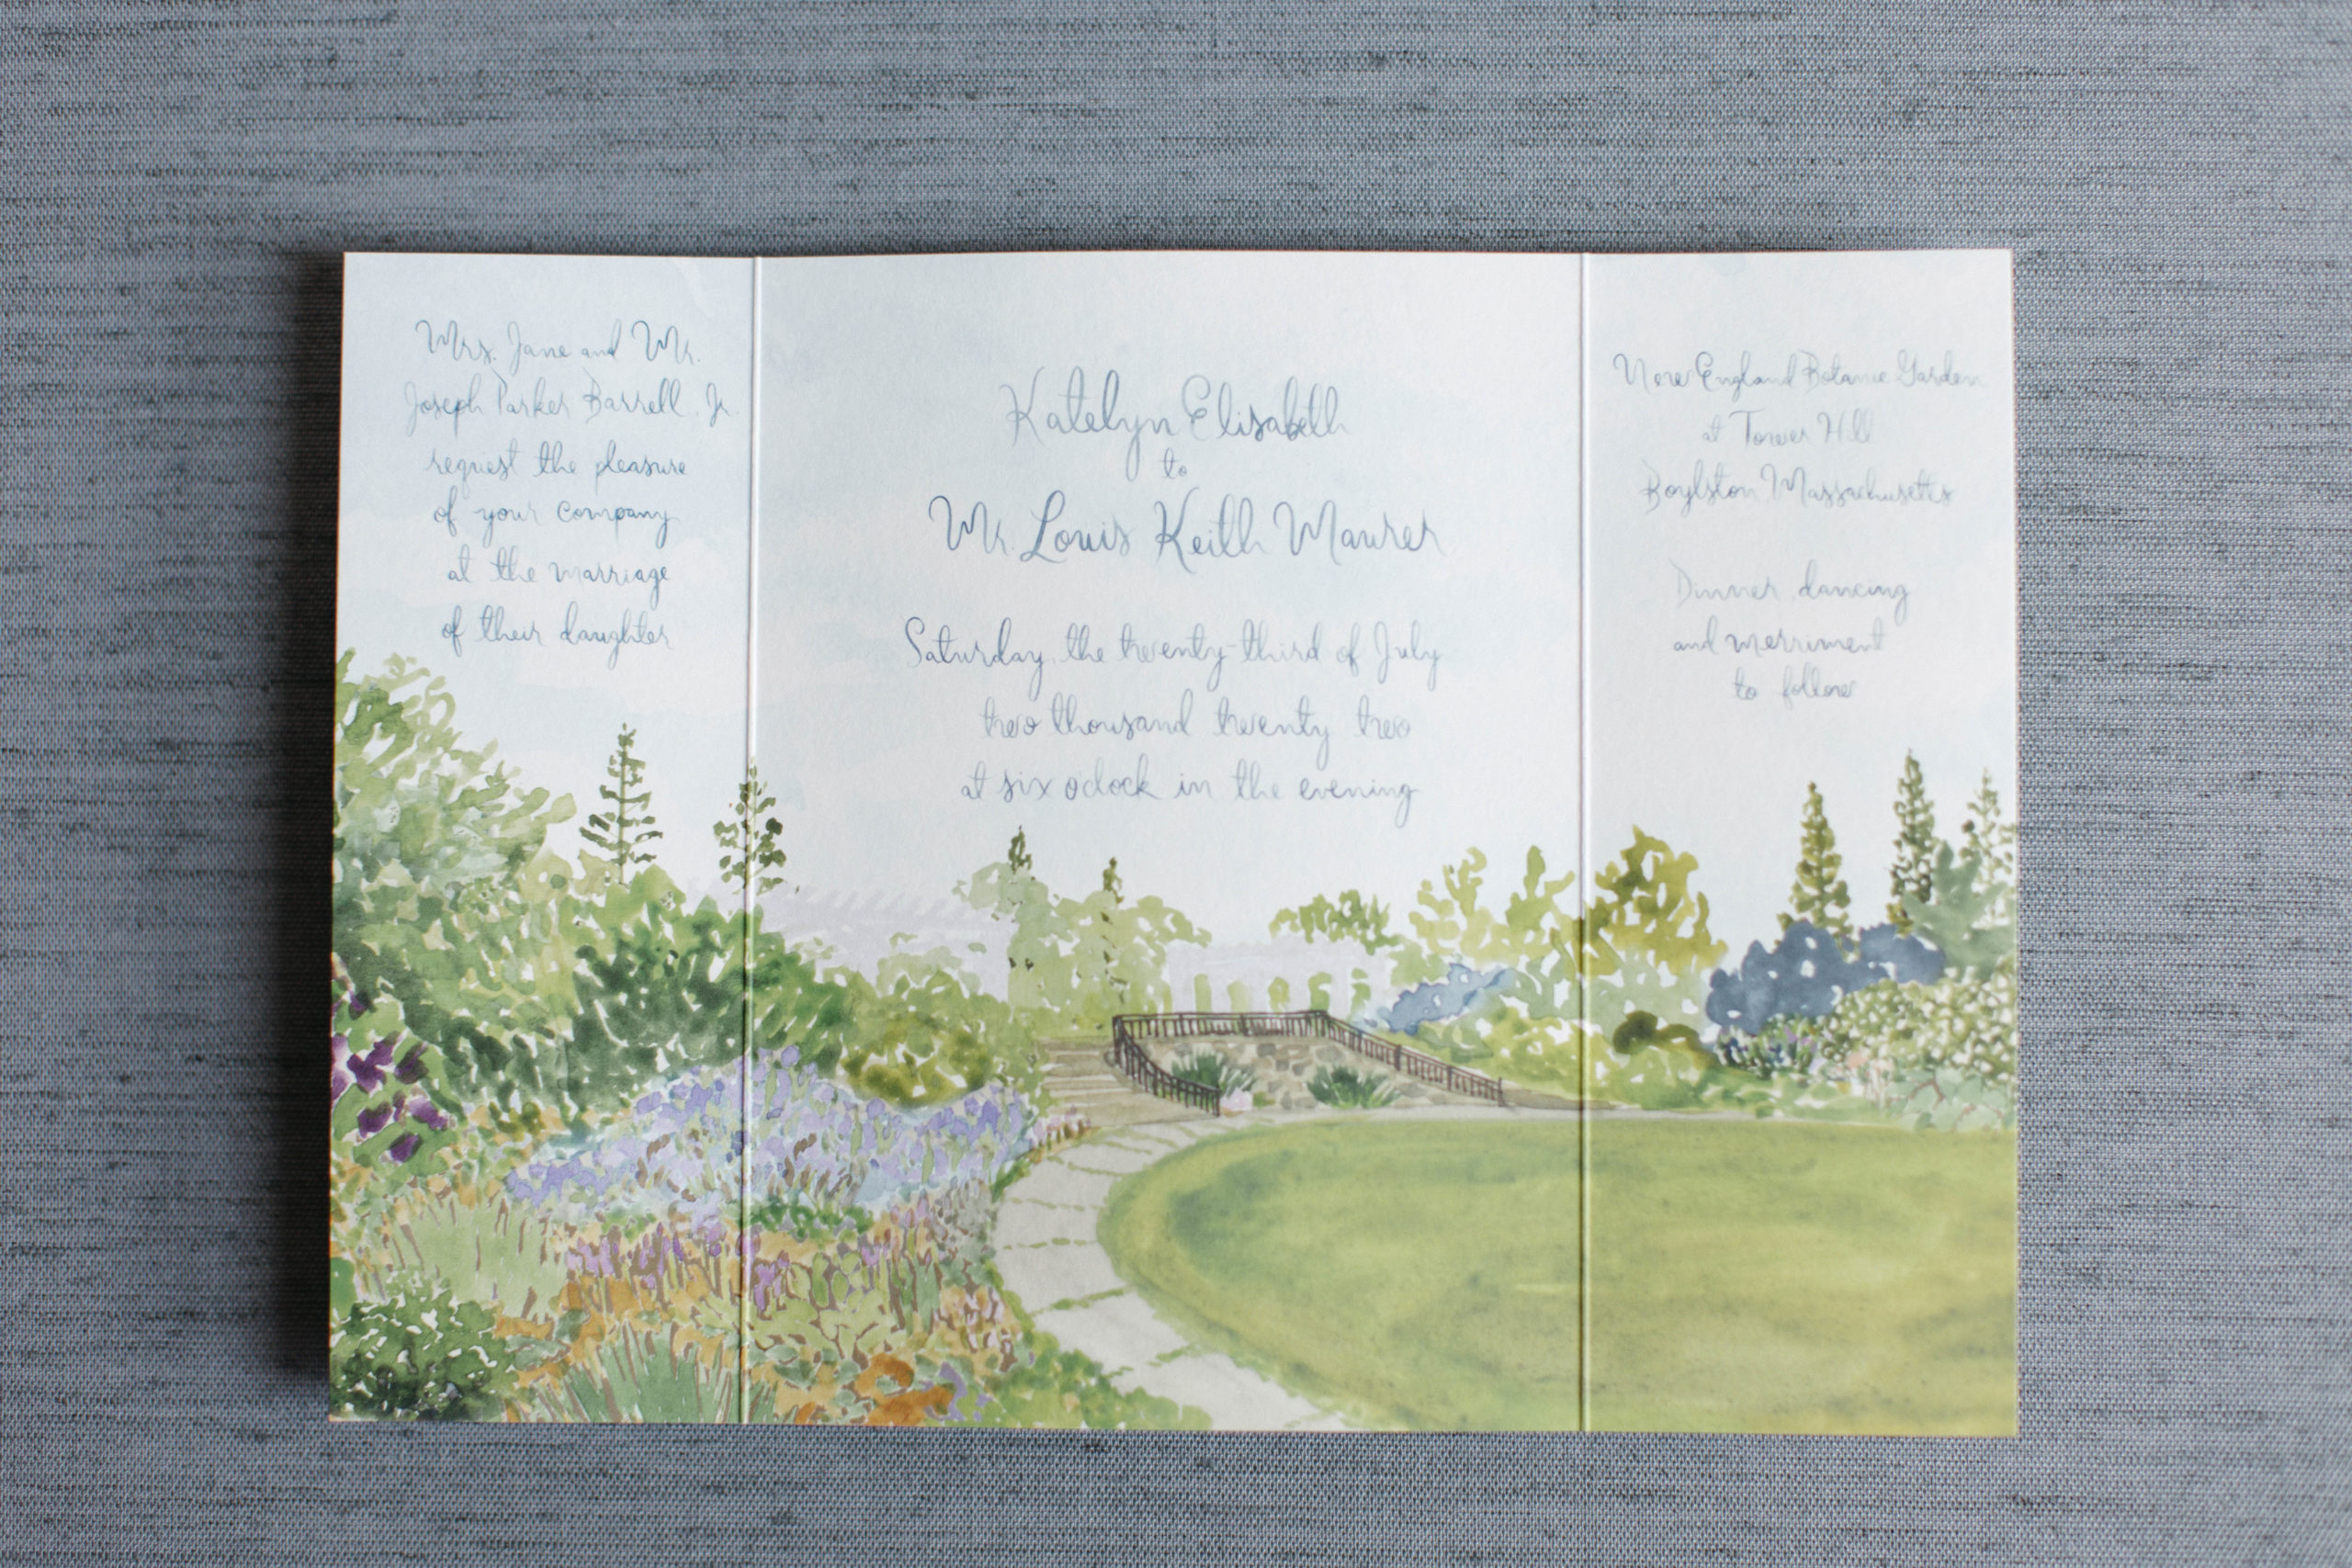 Mrs. Jane and Mr.
Joseph Parker Barrell, Jr.
request the pleasure
of your company
at the marriage
of their daughter
Katelyn Elisabeth
to
Mr. Louis Keith Maurer
Saturday, the twenty-third of July
two thousand twenty two
at six o'clock in the evening
New England Botanic Garden
at Tower Hill
Boylston, Massachusetts
Dinner, dancing
and merriment
to follow